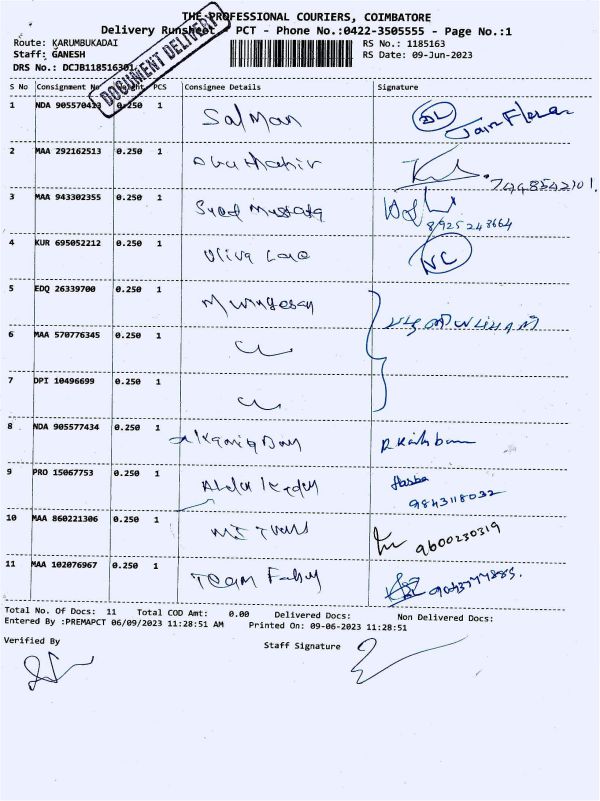 THE PROFESSIONAL COURIERS, COIMBATORE
Delivery Runsheet - PCT - Phone No.:0422-3505555 - Page No.:1
Route: KARUMBUKADAI RS No.: 1185163
Staff: GANESH RS Date: 09-Jun-2023
DRS No.: DCJB118516301
DOCUMENT DELIVERY
S No Consignment No Weight PCS Consignee Details Signature
1 NDA 905570413 0.250 1 Salman
2 MAA 292162513 0.250 1 7448542101.
3 MAA 943302355 0.250 1 Syed Mustafa 8925243664
4 KUR 695052212 0.250 1 NC
5 EDQ 26339700 0.250 1 Murugesan
6 MAA 570776345 0.250 1
7 DPI 10496699 0.250 1
8 NDA 905577434 0.250 1
9 PRO 15067753 0.250 1 9843118032
10 MAA 860221306 0.250 1 9600230319
11 MAA 102076967 0.250 1 Team
Total No. Of Docs: 11 Total COD Amt: 0.00 Delivered Docs: Non Delivered Docs:
Entered By :PREMAPCT 06/09/2023 11:28:51 AM Printed On: 09-06-2023 11:28:51
Verified By Staff Signature